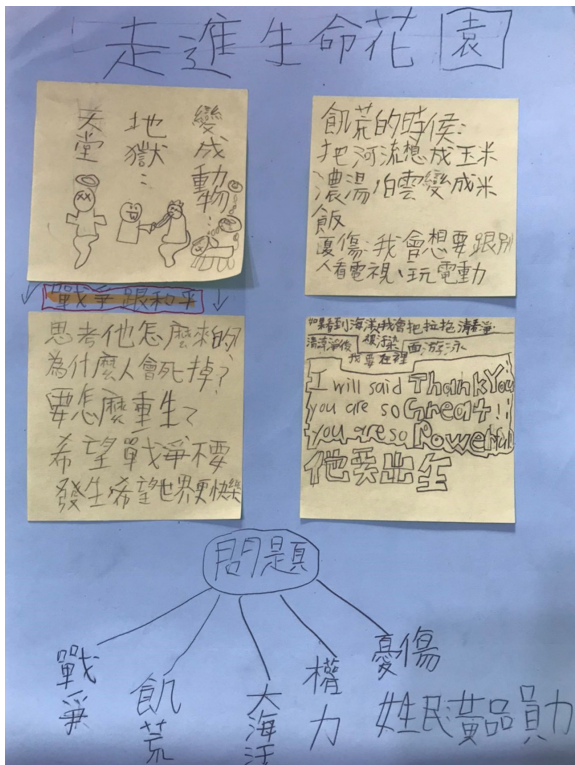 走進生命花園
變成動物：
地獄：
天堂
飢荒的時候：
把河流想成玉米
濃湯、白雲變成米
飯
憂傷：我會想要跟別
人看電視、玩電動
戰爭跟和平
思考他怎麼來的?
為什麼人會死掉?
要怎麼重生?
希望戰爭不要
發生希望世界更快樂
如果看到海洋被污染我會把垃圾清乾淨
清乾淨後
我要在裡面游泳
I will said Thank You
you are so Great!!
you are so Powerful
問題
戰爭
飢荒
大海汙
權力
憂傷